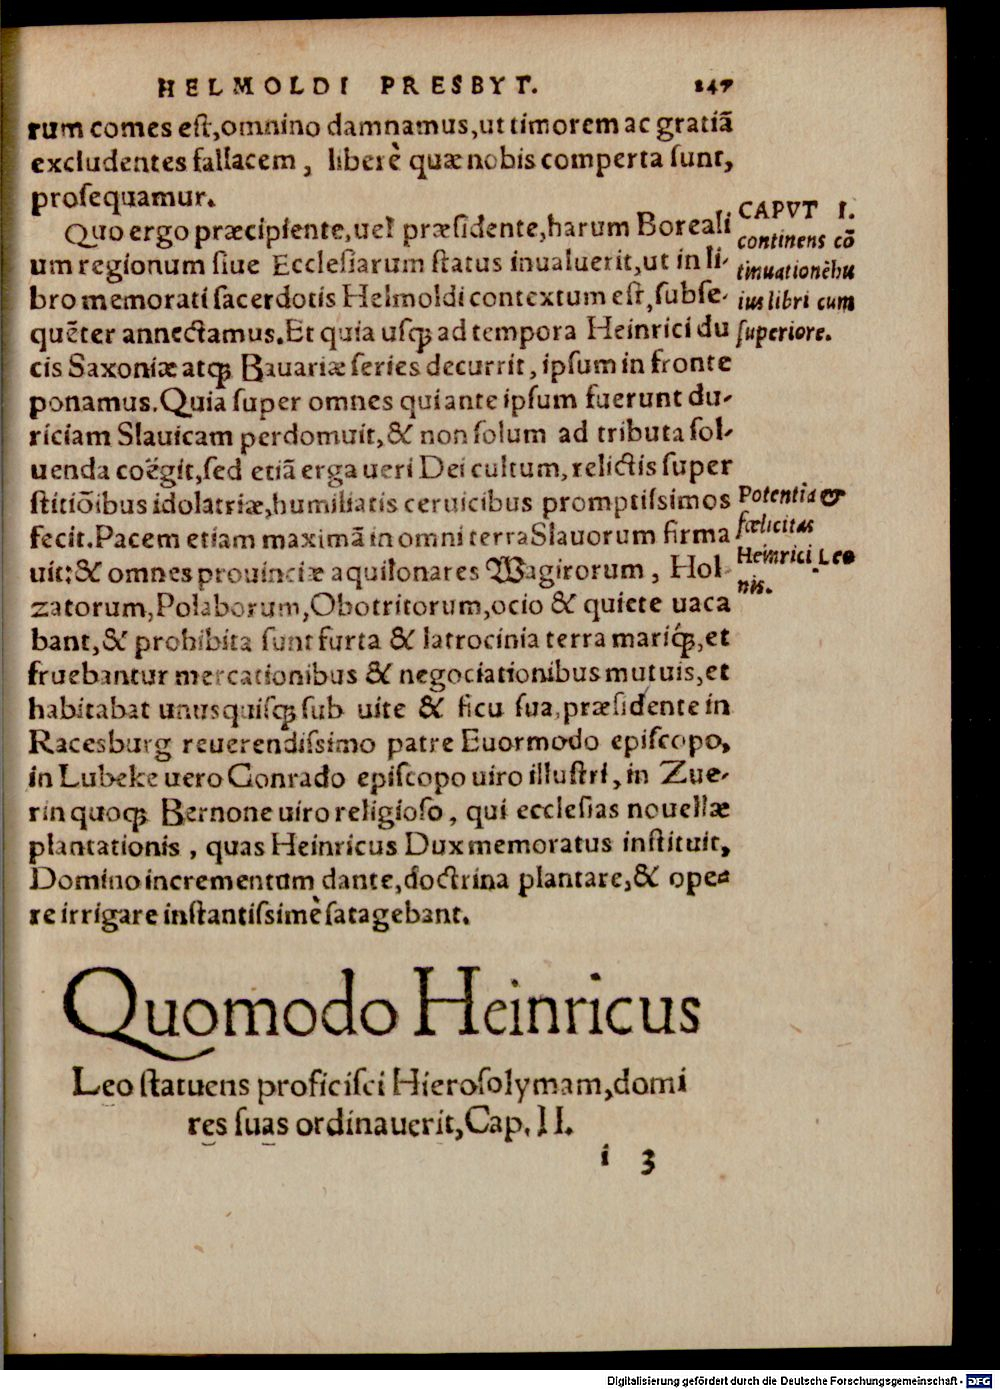 HELMOLDI PRESBYT. 247
rum comes eſt,omnino damnamus,ut timorem ac gratiã
excludentes fallacem, liberè quæ nobis comperta ſunt,
proſequamur.
Quo ergo præcipiente,uel præſidente,harum Boreali
um regionum ſiue Eccleſiarum ſtatus inualuerit,ut in li-
bro memorati ſacerdotis Helmoldi contextum eſt,ſubſe-
quẽter annectamus.Et quia uſq; ad tempora Heinrici du
cis Saxoniæ atq; Bauariæ ſeries decurrit, ipſum in fronte
ponamus.Quia ſuper omnes qui ante ipſum fuerunt du-
riciam Slauicam perdomuit,& non ſolum ad tributa ſol-
uenda coëgit,ſed etiã erga ueri Dei cultum,relictis ſuper
ſtitiõibus idolatriæ,humiliatis ceruicibus promptiſsimos
fecit.Pacem etiam maximã in omni terra Slauorum firma
uit:& omnes prouinciæ aquilonares Wagirorum, Hol-
zatorum,Polaborum,Obotritorum,ocio & quiete uaca
bant,& prohibita ſunt furta & latrocinia terra mariq́;,et
fruebantur mercationibus & negociationibus mutuis,et
habitabat unusquiſq; ſub uite & ficu ſua,præſidente in
Racesburg reuerendiſsimo patre Euormodo epiſcopo,
in Lubeke uero Conrado epiſcopo uiro illuſtri, in Zue-
rin quoq; Bernone uiro religioſo, qui eccleſias nouellæ
plantationis, quas Heinricus Dux memoratus inſtituit,
Domino incrementum dante,doctrina plantare,& ope-
re irrigare inſtantiſsimè ſatagebant.
CAPVT I.
continens cõ
tinuationẽ hu
ius libri cum
ſuperiore.
Potentia &
fœlicitas
Heinrici Leo
nis.
Quomodo Heinricus
Leo ſtatuens proficiſci Hieroſolymam,domi
res ſuas ordinauerit,Cap. II.
i 3
Digitalisierung gefördert durch die Deutsche Forschungsgemeinschaft - DFG